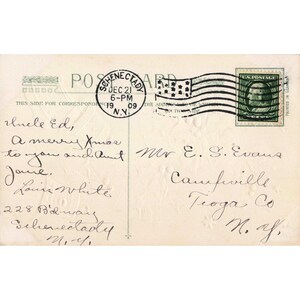 POST CARD
THIS SIDE FOR CORRESPONDENCE
SCHENECTADY
DEC 21
6-PM
1909
N.Y.
U.S. POSTAGE
Uncle Ed,
A merry Xmas
to you and Aunt
Jane.
Louis White
228 B'dway
Schenectady
N.Y.
Mr E. S. Evans
Campville
Tioga Co
N.Y.